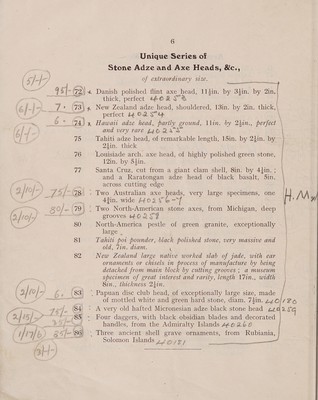 6
Unique Series of
Stone Adze and Axe Heads, &c.,
of extraordinary size.
72 Danish polished flint axe head, 11¾in. by 3¼in. by 2in.
thick, perfect
73 New Zealand adze head, shouldered, 13in. by 2in. thick,
perfect 40254
74 Hawaii adze head, partly ground, 11in. by 2½in., perfect
and very rare
75 Tahiti adze head, of remarkable length, 15in. by 2¼in. by
2¼in. thick
76 Louisiade arch. axe head, of highly polished green stone,
12in. by 5½in.
77 Santa Cruz, cut from a giant clam shell, 8in. by 4½in. ;
and a Raratongan adze head of black basalt, 5in.
across cutting edge
78 Two Australian axe heads, very large specimens, one
4¾in. wide 40256-7
79 Two North-American stone axes, from Michigan, deep
grooves
80 North-America pestle of green granite, exceptionally
large
81 Tahiti poi pounder, black polished stone, very massive and
old, 7in. diam.
82 New Zealand large native worked slab of jade, with ear
ornaments or chisels in process of manufacture by being
detached from main block by cutting grooves ; a museum
specimen of great interest and rarity, length 17in., width
8in., thickness 2½in.
83 Papuan disc club head, of exceptionally large size, made
of mottled white and green hard stone, diam. 7½in. 40180
84 A very old hafted Micronesian adze black stone head 40259
85 Four daggers, with black obsidian blades and decorated
handles, from the Admiralty Islands 40260
86 Three ancient shell grave ornaments, from Rubiania,
Solomon Islands 40181